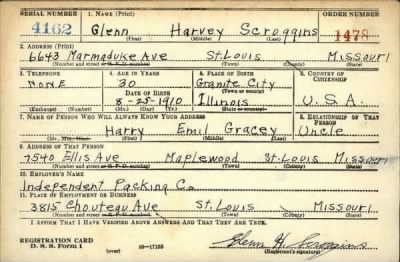 SERIAL NUMBER 1. NAME (Print) ORDER NUMBER
4162 Glenn Harvey Scroggins 1478
(First) (Middle) (Last)
2. ADDRESS (Print)
6643 Marmaduke Ave St. Louis Missouri
(Number and street or R. F. D. number) (Town) (County) (State)
3. TELEPHONE 4. AGE IN YEARS 5. PLACE OF BIRTH 6. COUNTRY OF CITIZENSHIP
NONE 30 Granite City
DATE OF BIRTH (Town or county)
8-25-1910 Illinois U.S.A.
(Exchange) (Number) (Mo.) (Day) (Yr.) (State or country)
7. NAME OF PERSON WHO WILL ALWAYS KNOW YOUR ADDRESS 8. RELATIONSHIP OF THAT PERSON
Harry Emil Gracey Uncle
(Mr., Mrs., Miss) (First) (Middle) (Last)
9. ADDRESS OF THAT PERSON
7540 Ellis Ave Maplewood St. Louis Missouri
(Number and street or R. F. D. number) (Town) (County) (State)
10. EMPLOYER'S NAME
Independent Packing Co
11. PLACE OF EMPLOYMENT OR BUSINESS
3815 Chouteau Ave St. Louis Missouri
(Number and street or R. F. D. number) (Town) (County) (State)
I AFFIRM THAT I HAVE VERIFIED ABOVE ANSWERS AND THAT THEY ARE TRUE.
REGISTRATION CARD
D. S. S. Form 1 (over) 16-17105 Glenn H. Scroggins
(Registrant's signature)